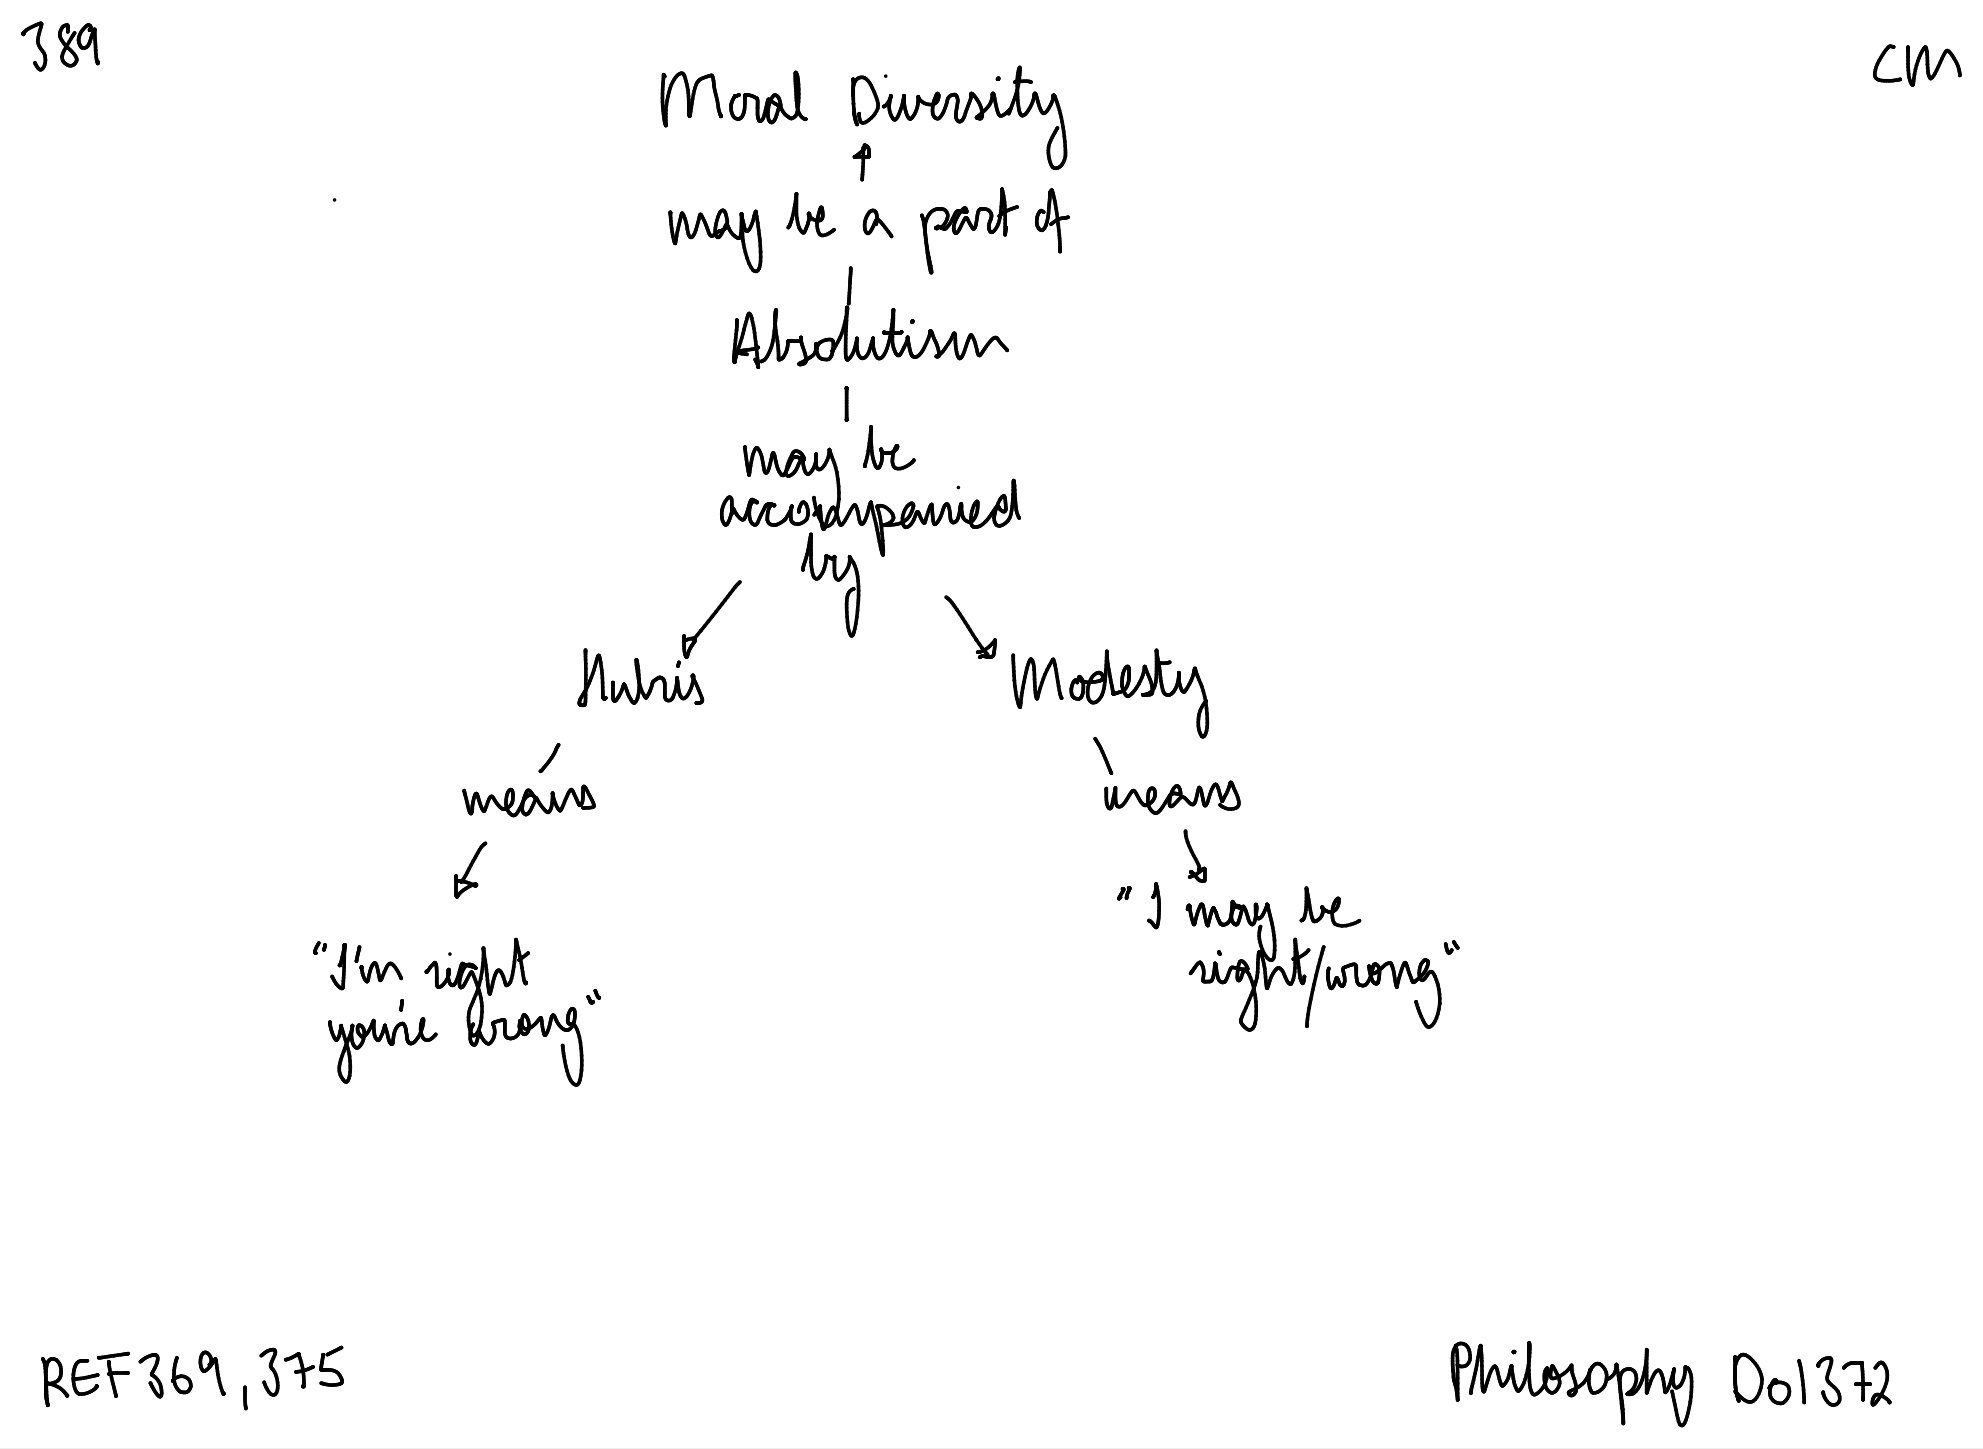 389
CM
Moral Diversity
may be a part of
Absolutism
may be
accompanied
by
Hubris
Modesty
means
means
"I'm right
you're wrong"
"I may be
right/wrong"
REF369,375
Philosophy Do1372